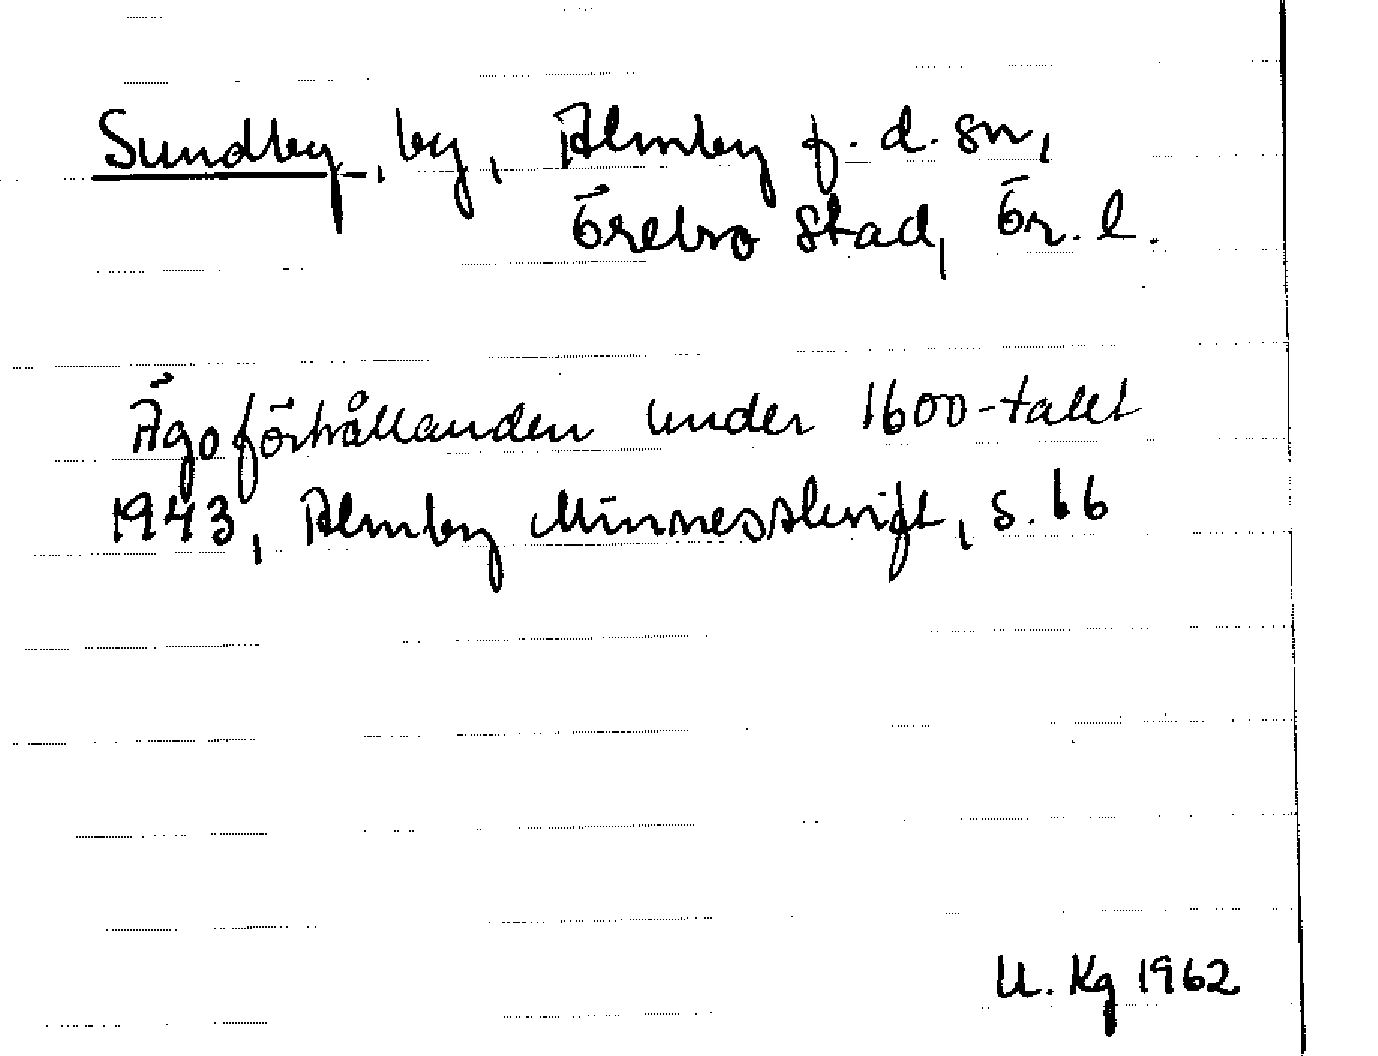 Sundby, by, Almby f. d. sn,
Örebro stad, Ör. l.
Ägoförhållanden under 1600-talet
1943, Almby Minnesskrift, s. 66
U. Kg 1962